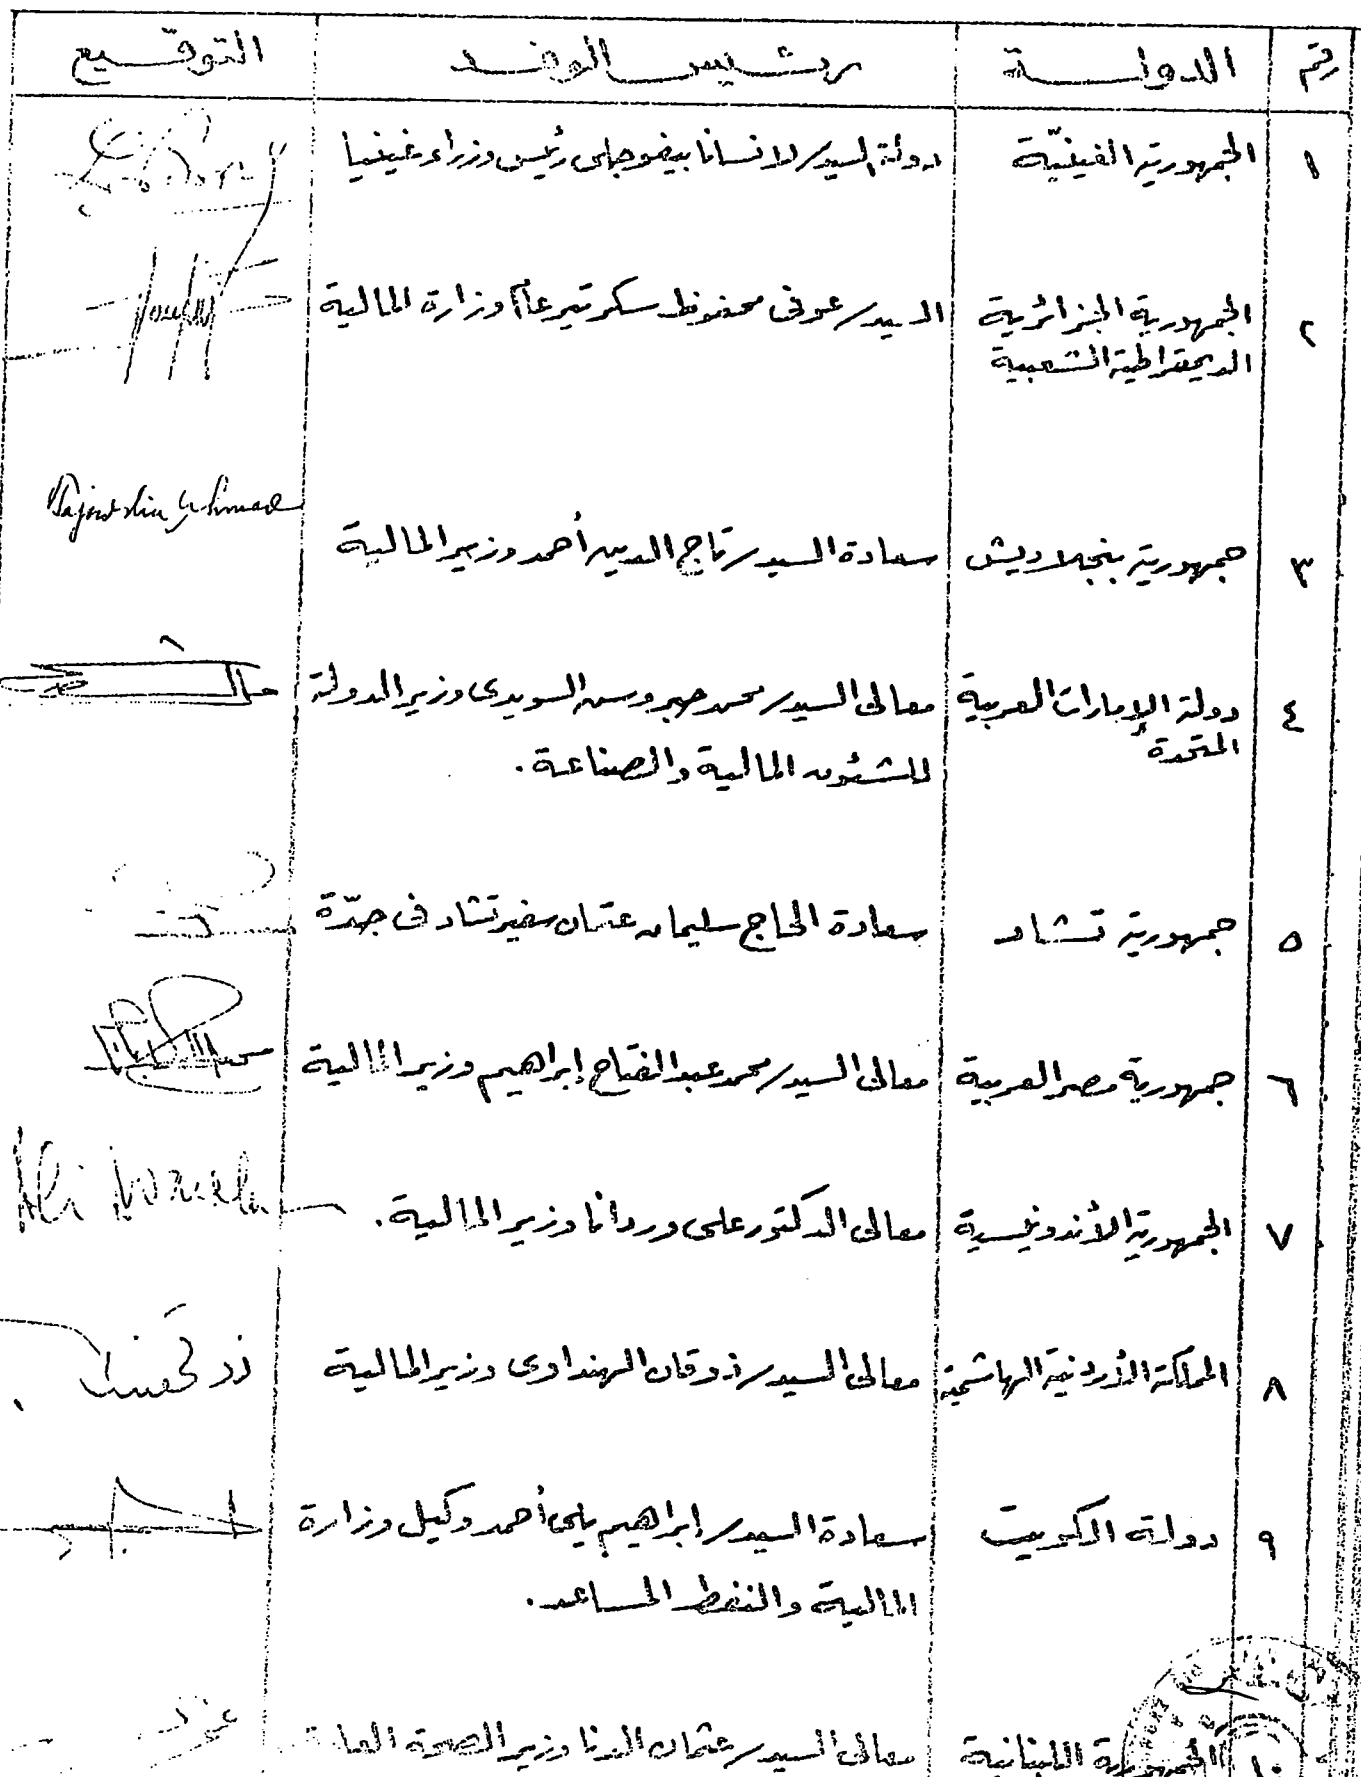 رقم الدولة رئيس الوفد التوقيع
١ الجمهورية الغينيّة دولة السيد/ لانسانا بيفوجلى رئيس وزراء غينيا
٢ الجمهورية الجزائرية السيد/ عوفى محفوظ سكرتير عام وزارة المالية
الديمقراطية الشعبية
Tajuddin Ahmad
٣ جمهورية بنجلاديش سعادة السيد/ تاج الدين أحمد وزير المالية
٤ دولة الإمارات العربية معالى السيد/ محمد حبروسه السويدى وزير الدولة
المتحدة
للشئون المالية والصناعة .
٥ جمهورية تشاد سعادة الحاج سليمان عثمان سفير تشاد فى جدّة
٦ جمهورية مصر العربية معالى السيد/ محمد عبد الفتاح إبراهيم وزير المالية
٧ الجمهورية الأندونيسية معالى الدكتور على وردانا وزير المالية .
Ali
٨ المملكة الأردنية الهاشمية معالى السيد/ ذوقان الهنداوى وزير المالية
٩ دولة الكويت سعادة السيد/ إبراهيم على أحمد وكيل وزارة
المالية والنفط المساعد .
١٠ الجمهورية اللبنانية معالى السيد/ عثمان الدنا وزير الصحة العامة